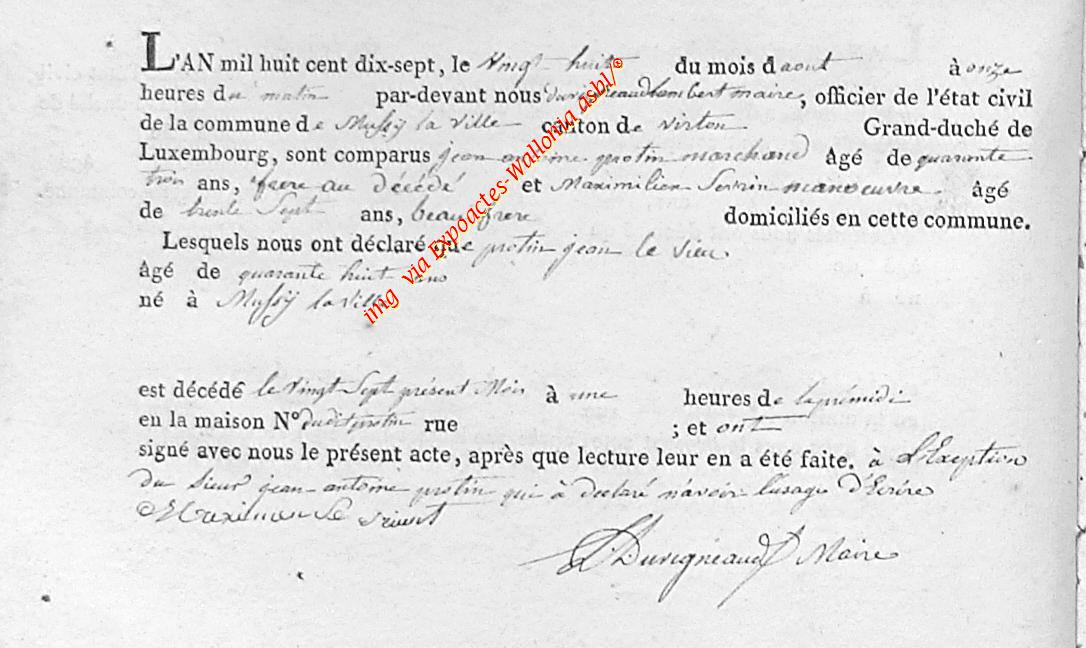 L'AN mil huit cent dix-sept, le vingt huit du mois d aout à onze
heures du matin par-devant nous duvigneaud lambert maire, officier de l'état civil
de la commune de Mussÿ la Ville canton de virton Grand-duché de
Luxembourg, sont comparus jean antoine protin marchand âgé de quarante
trois ans, frere au décédé et Maximilien manoeuvre âgé
de trente Sept ans, beau frere domiciliés en cette commune.
Lesquels nous ont déclaré que protin jean le vieu
âgé de quarante huit ans
né à Mussÿ la Ville
est décédé le vingt Sept présent Mois à une heures de laprémidi
en la maison N° dudit protin rue ; et ont
signé avec nous le présent acte, après que lecture leur en a été faite. à L'Exeption
du Sieur jean antoine protin qui à declaré n'avoir l'usage d'Ecrire
Duvigneaud Maire
img via Expoactes-Wallonia asbl/©